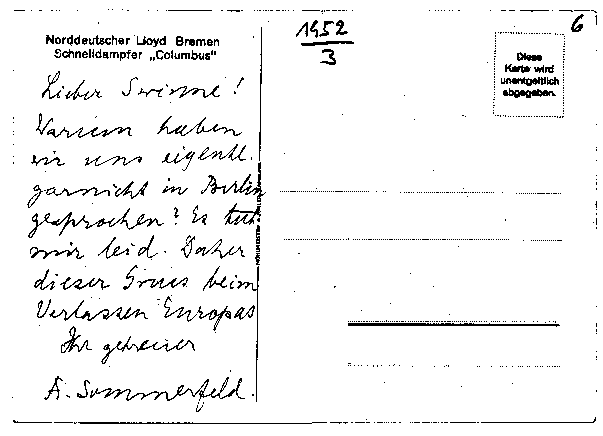 Norddeutscher Lloyd Bremen
Schnelldampfer „Columbus"
1952
3
6
Diese
Karte wird
unentgeltlich
abgegeben.
Lieber Swinne!
Warum haben
wir uns eigentl.
garnicht in Berlin
gesprochen? Es tut
mir leid. Daher
dieser Gruss beim
Verlassen Europas
Ihr getreuer
A. Sommerfeld.